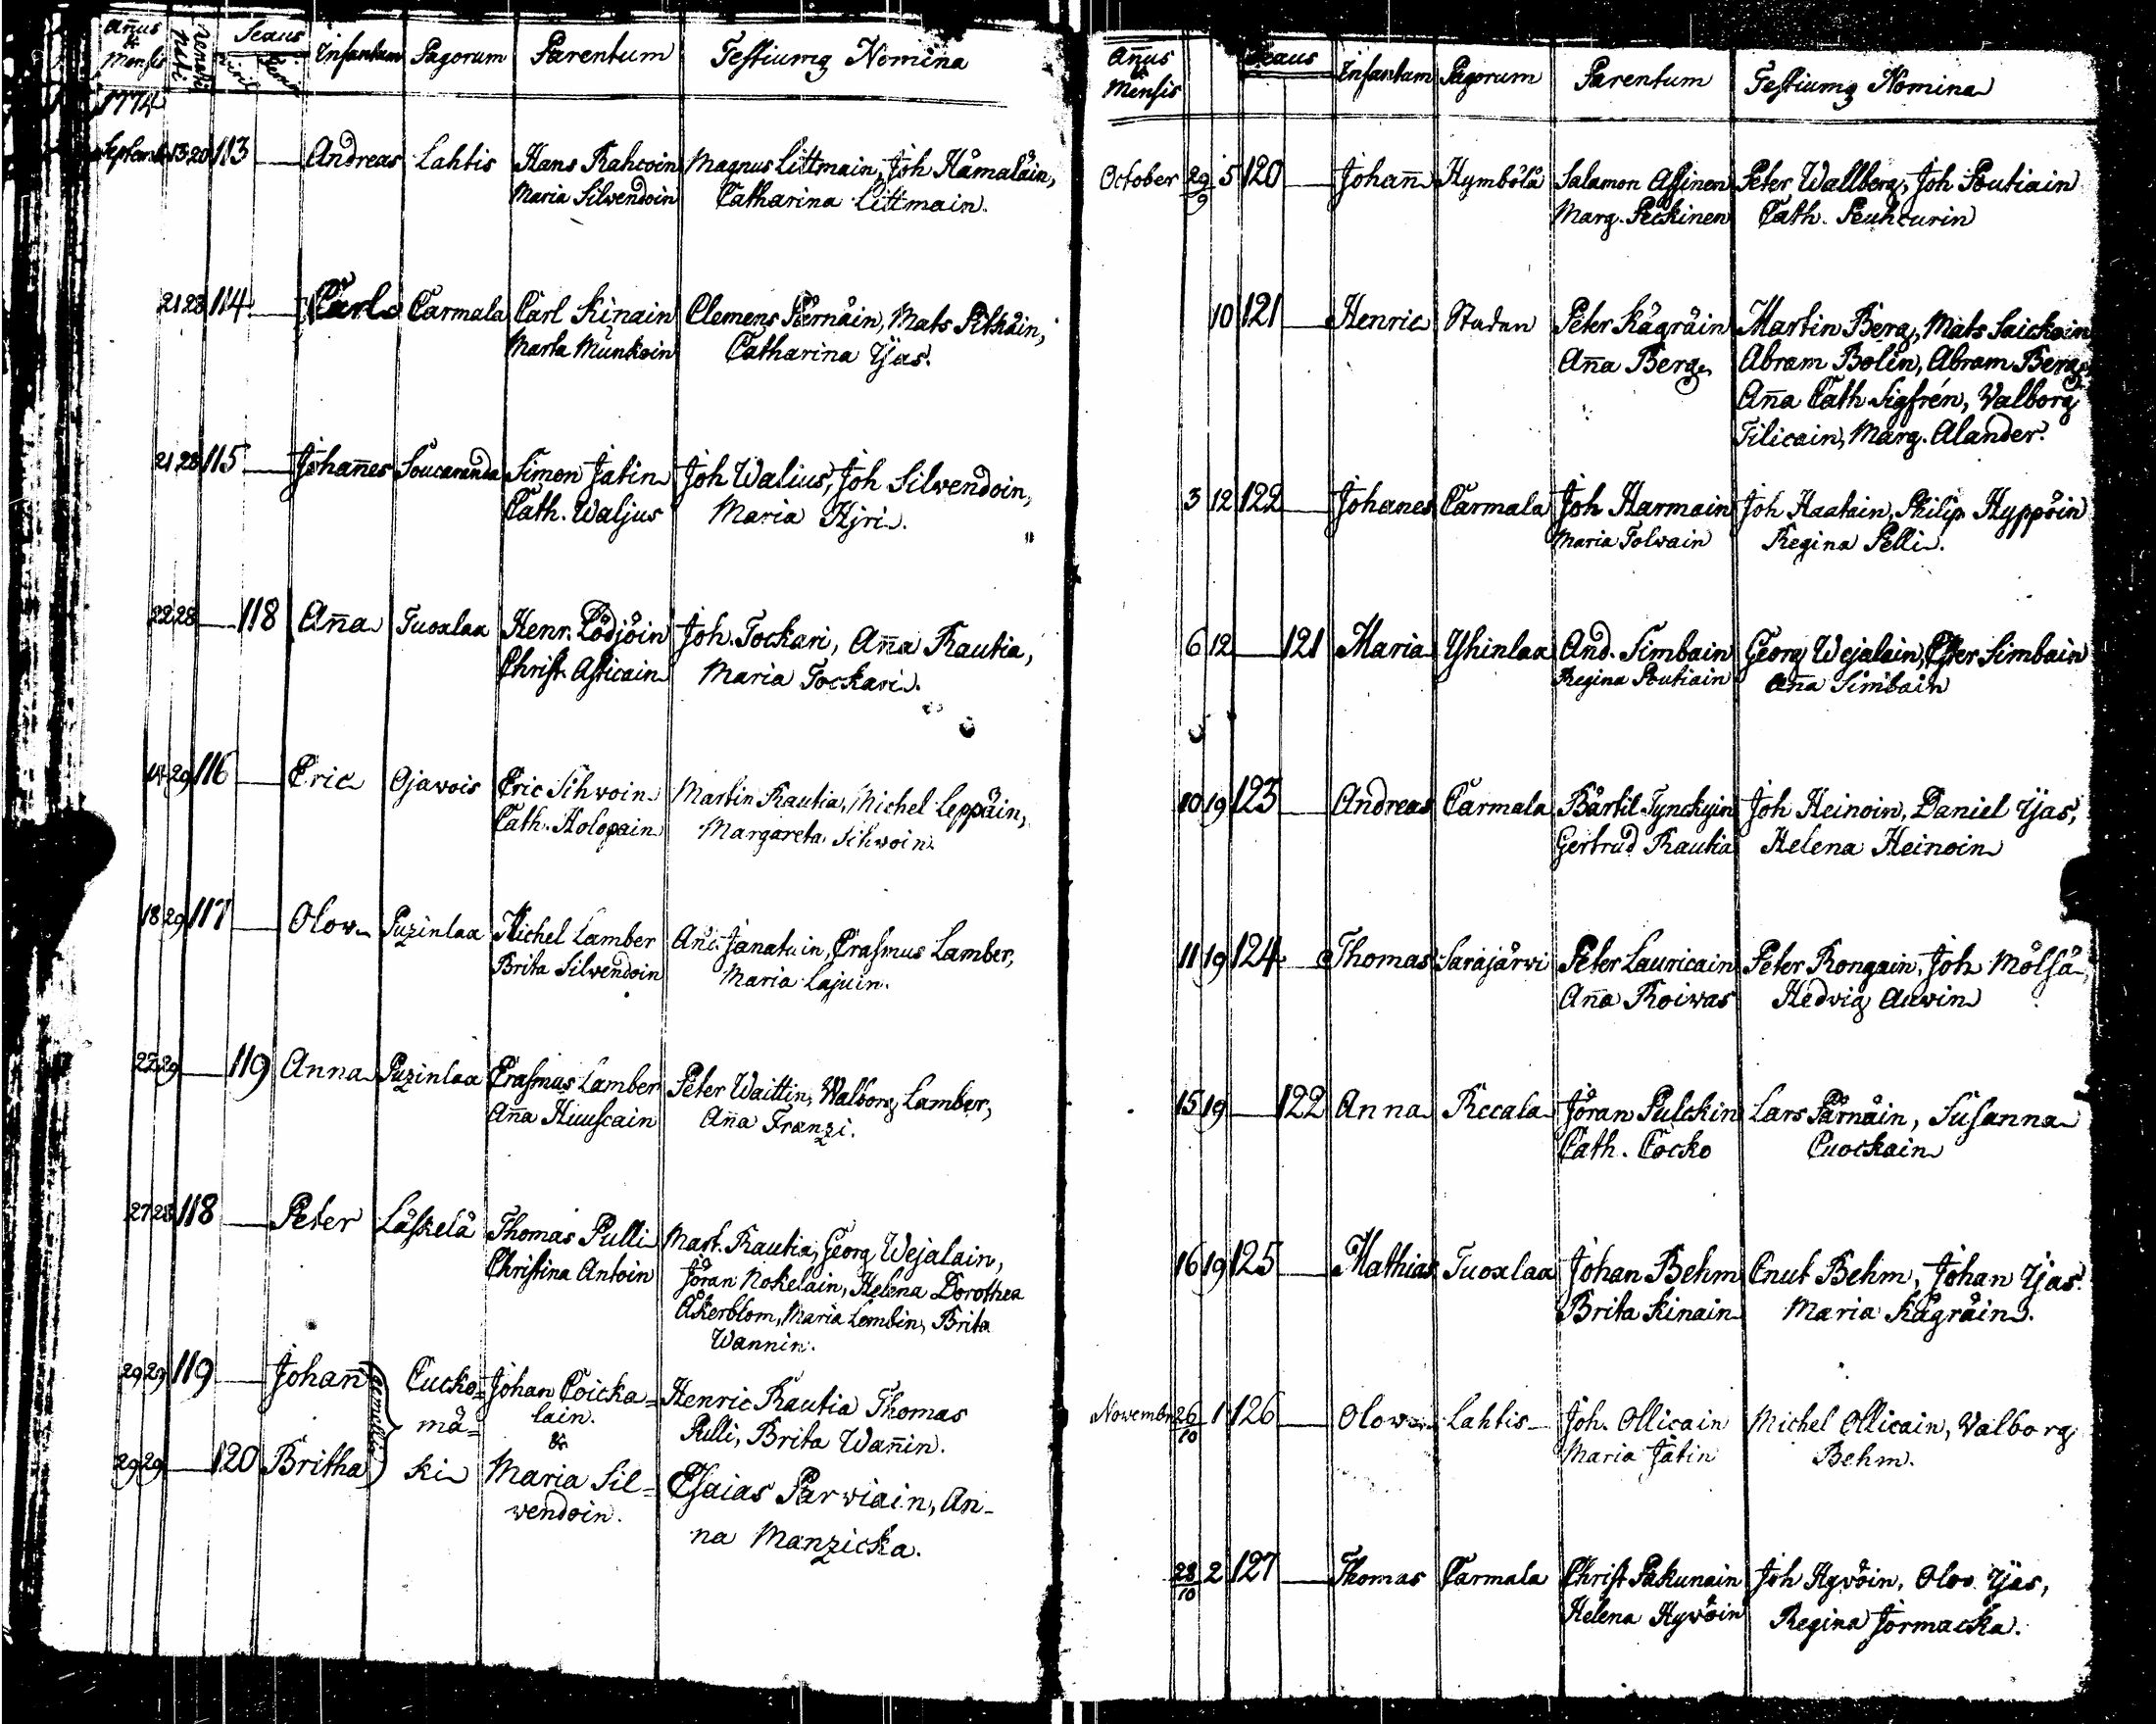 Annus & Mensis nati renati Sexus Viril Femin Infantum Pagorum Parentum Testiumq Nomina
1774
Septemb 13 20 113 — Andreas Lahtis Hans Rahcoin Magnus Littmain, Joh Hämäläin,
Maria Silvendoin Catharina Littmain.
21 28 114 — Carl Carmala Carl Kinain Clemens Pärnäin, Mats Pitkäin,
Marta Munkoin Catharina Yas.
21 28 115 — Johañes Soucaranda Simon Jatin Joh Walius, Joh Silvendoin,
Cath. Waljus Maria Hjri.
22 28 — 118 Aña Tuoxlax Henr. Lödjöin Joh. Tockari, Aña Rautia,
Christ. Assicain Maria Tockari.
14 29 116 — Eric Ojavois Eric Sihvoin Martin Rautia, Michel Leppäin,
Cath. Holopain Margareta Sihvoin.
18 29 117 — Olov Puzinlax Michel Lamber And. Janatuin, Erasmus Lamber,
Brita Silvendoin Maria Lajuin.
22 29 — 119 Anna Puzinlax Erasmus Lamber Peter Waittin, Walborg Lamber,
Aña Huuscain Aña Franzi.
27 28 118 — Peter Läskelä Thomas Pulli Mart. Rautia, Georg Wejalain,
Christina Antoin Jöran Nokelain, Helena Dorothea
Åkerblom, Maria Lembin, Brita
Wannin.
29 29 119 — Johañ gemelli Cucko= Johan Coicka= Henric Rautia Thomas
mä= lain. Pulli, Brita Wañin.
&
29 29 — 120 Britha ki Maria Sil= Esaias Parviain, An-
vendoin. na Manzicka.
Añus & Mensis Sexus Infantum Pagorum Parentum Testiumq Nomina
October 29/9 5 120 — Johañ Hymbölä Salamon Assinen Peter Wallberg, Joh Poutiain
Marg. Peckinen Cath. Peuhcurin
10 121 — Henric Staden Peter Kägräin Martin Berg, Mats Saickoin
Aña Berg Abram Bolin, Abram Berg,
Aña Cath Sigfrén, Valborg
Tilicain, Marg. Alander.
3 12 122 — Johanes Carmala Joh Harmain Joh Haatain, Philip Hyppöin
Maria Tolvain Regina Pelli.
6 12 — 121 Maria Yhinlax And. Simbain Georg Wejalain, Ester Simbain
Regina Poutiain Aña Simbain
10 19 123 — Andreas Carmala Bärtil Tynckyin Joh Heinoin, Daniel Yas,
Gertrud Rautia Helena Heinoin
11 19 124 — Thomas Sarajärvi Peter Lauricain Peter Rongain, Joh Mölsä,
Aña Roivas Hedvig Auvin
15 19 — 122 Anna Riccala Jöran Pulckin Lars Pärnäin, Susanna
Cath. Cocko Cuockain
16 19 125 — Mathias Tuoxlax Johan Behm Cnut Behm, Johan Yas.
Brita Kinain Maria Kägräin.
Novembr 26/10 1 126 — Olov Lahtis Joh. Ollicain Michel Ollicain, Valborg
Maria Jatin Behm.
28/10 2 127 — Thomas Carmala Christ Pakunain Joh Hyvöin, Olov Yas,
Helena Hyvöin Regina Jormacka.